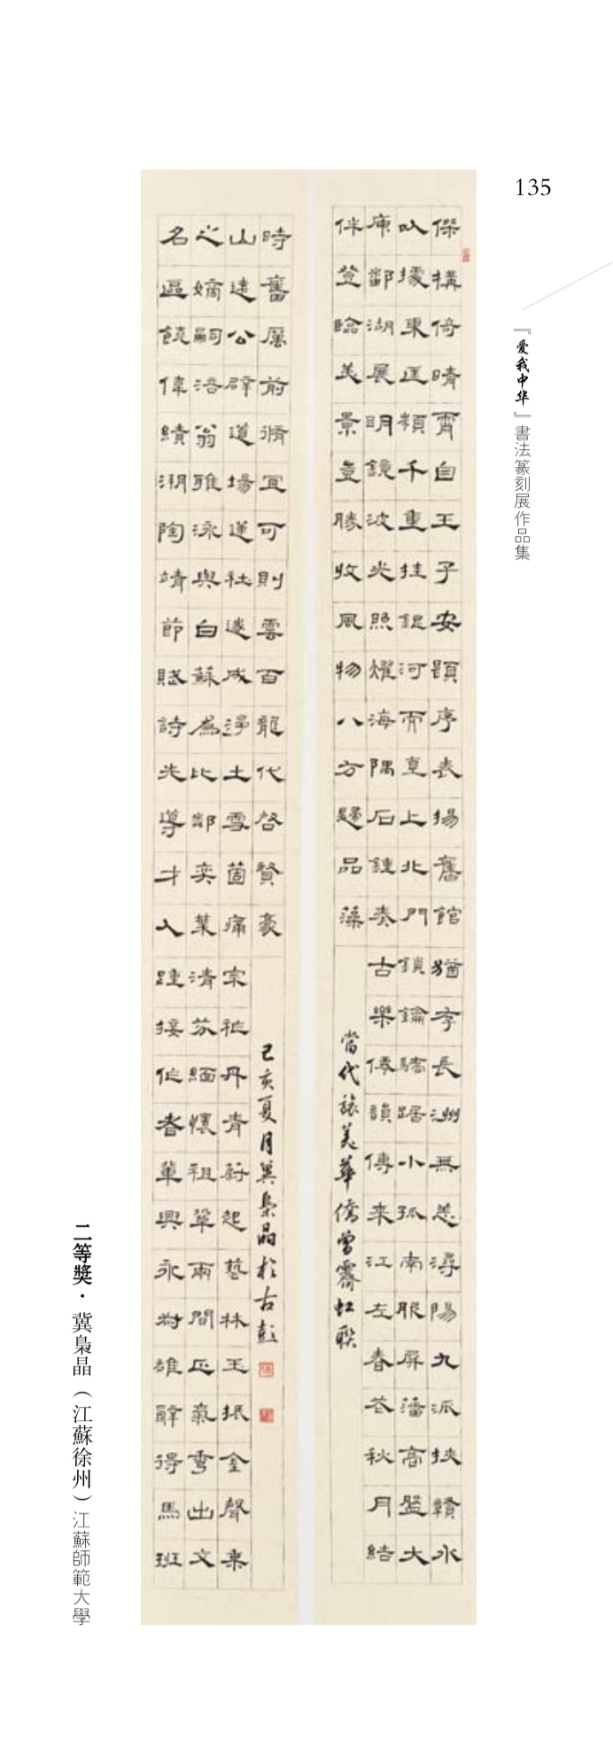 135
『爱我中华』書法篆刻展作品集
傑構倚晴霄自王子安題序表揚舊館猶存長洲無恙潯陽九派挾贛水
以據東匡嶺千重挂銀河而直上北門鎖鑰驕踞小孤南服屏藩高盤大
庾鄱湖展明鏡波光照燿海隅石鐘奏古樂儒韻傳來江左春花秋月結
伴登臨美景並勝收風物八方歸品藻
當代旅美華僑曾霽虹联
名區饒偉績溯陶靖節賦詩先導才人踵接作者輩興永叔雄辭得馬班
之嫡嗣涪翁雅詠與白蘇為比鄰奕葉清芬緬懷祖兩間正氣雩出文
山遠公辟道場蓮社遂成淨土雪箇痛宗祧丹青蔚起藝林玉振金聲秉
時奮厲前脩宜可則雲百龍代啓賢豪
己亥夏月冀梟晶於古彭
二等獎·冀梟晶（江蘇徐州）江蘇師範大學